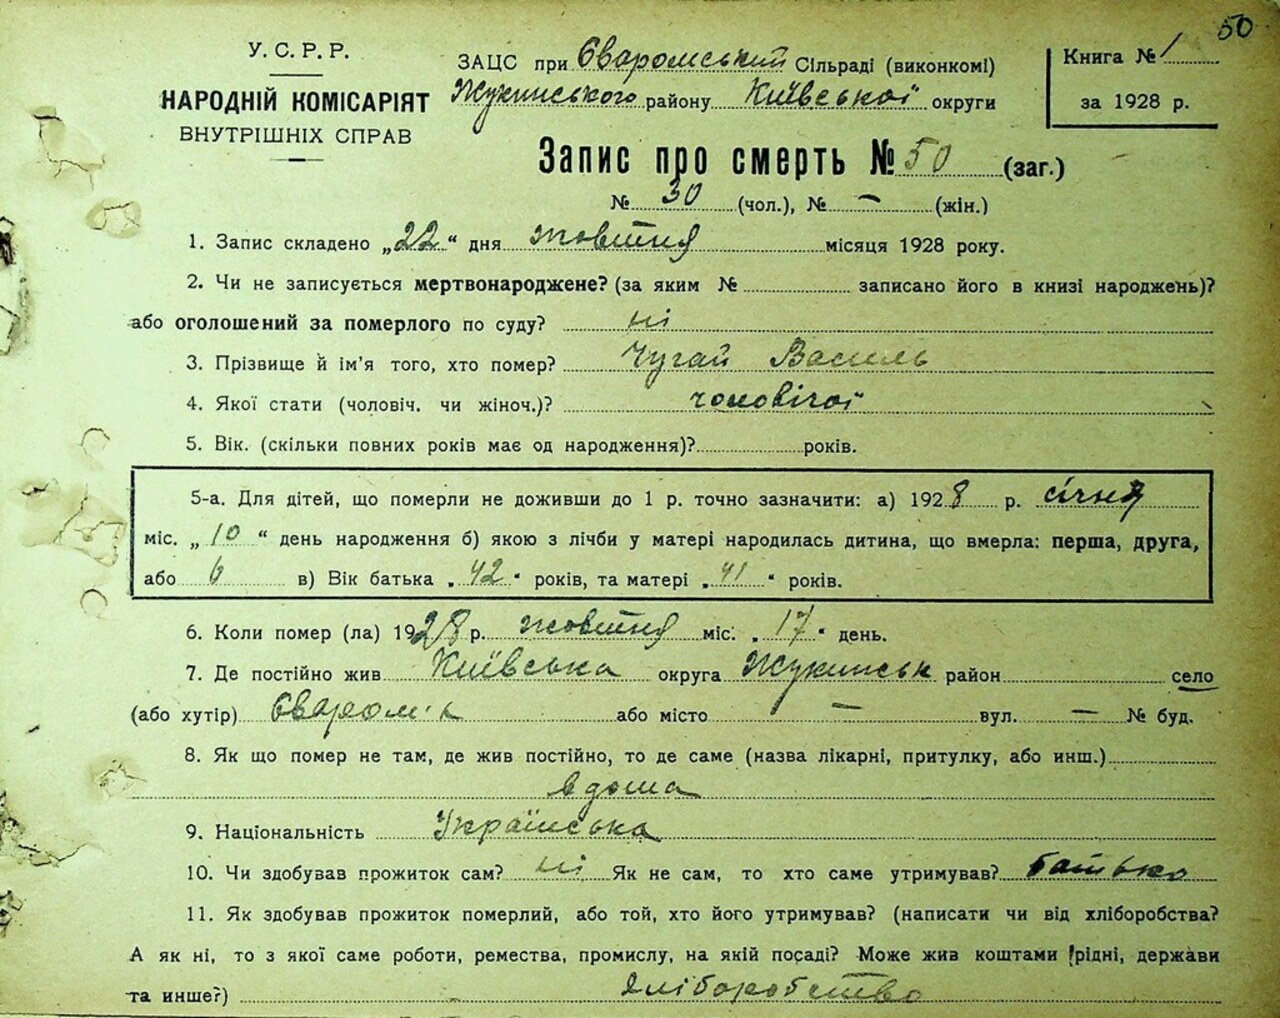 50
У. С. Р. Р.
НАРОДНІЙ КОМІСАРІЯТ
ВНУТРІШНІХ СПРАВ
ЗАЦС при Єваромський Сільраді (виконкомі)
Жукинського району Київської округи
Книга № 1
за 1928 р.
Запис про смерть № 50 (заг.)
№ 30 (чол.), № — (жін.)
1. Запис складено „22“ дня жовтня місяця 1928 року.
2. Чи не записується мертвонароджене? (за яким № записано його в книзі народжень)?
або оголошений за померлого по суду? ні
3. Прізвище й ім'я того, хто помер? Чугай Василь
4. Якої стати (чоловіч. чи жіноч.)? чоловічої
5. Вік. (скільки повних років має од народження)? років.
5-а. Для дітей, що померли не доживши до 1 р. точно зазначити: а) 1928 р. січня
міс. „10“ день народження б) якою з лічби у матері народилась дитина, що вмерла: перша, друга,
або 6 в) Вік батька „42“ років, та матері „41“ років.
6. Коли помер (ла) 1928 р. жовтня міс. „17“ день.
7. Де постійно жив Київська округа Жукинськ район село
(або хутір) Єваромʼк або місто — вул. — № буд.
8. Як що помер не там, де жив постійно, то де саме (назва лікарні, притулку, або инш.)
вдома
9. Національність Українська
10. Чи здобував прожиток сам? ні Як не сам, то хто саме утримував? батько
11. Як здобував прожиток померлий, або той, хто його утримував? (написати чи від хліборобства?
А як ні, то з якої саме роботи, ремества, промислу, на якій посаді? Може жив коштами рідні, держави
та инше?) хліборобство